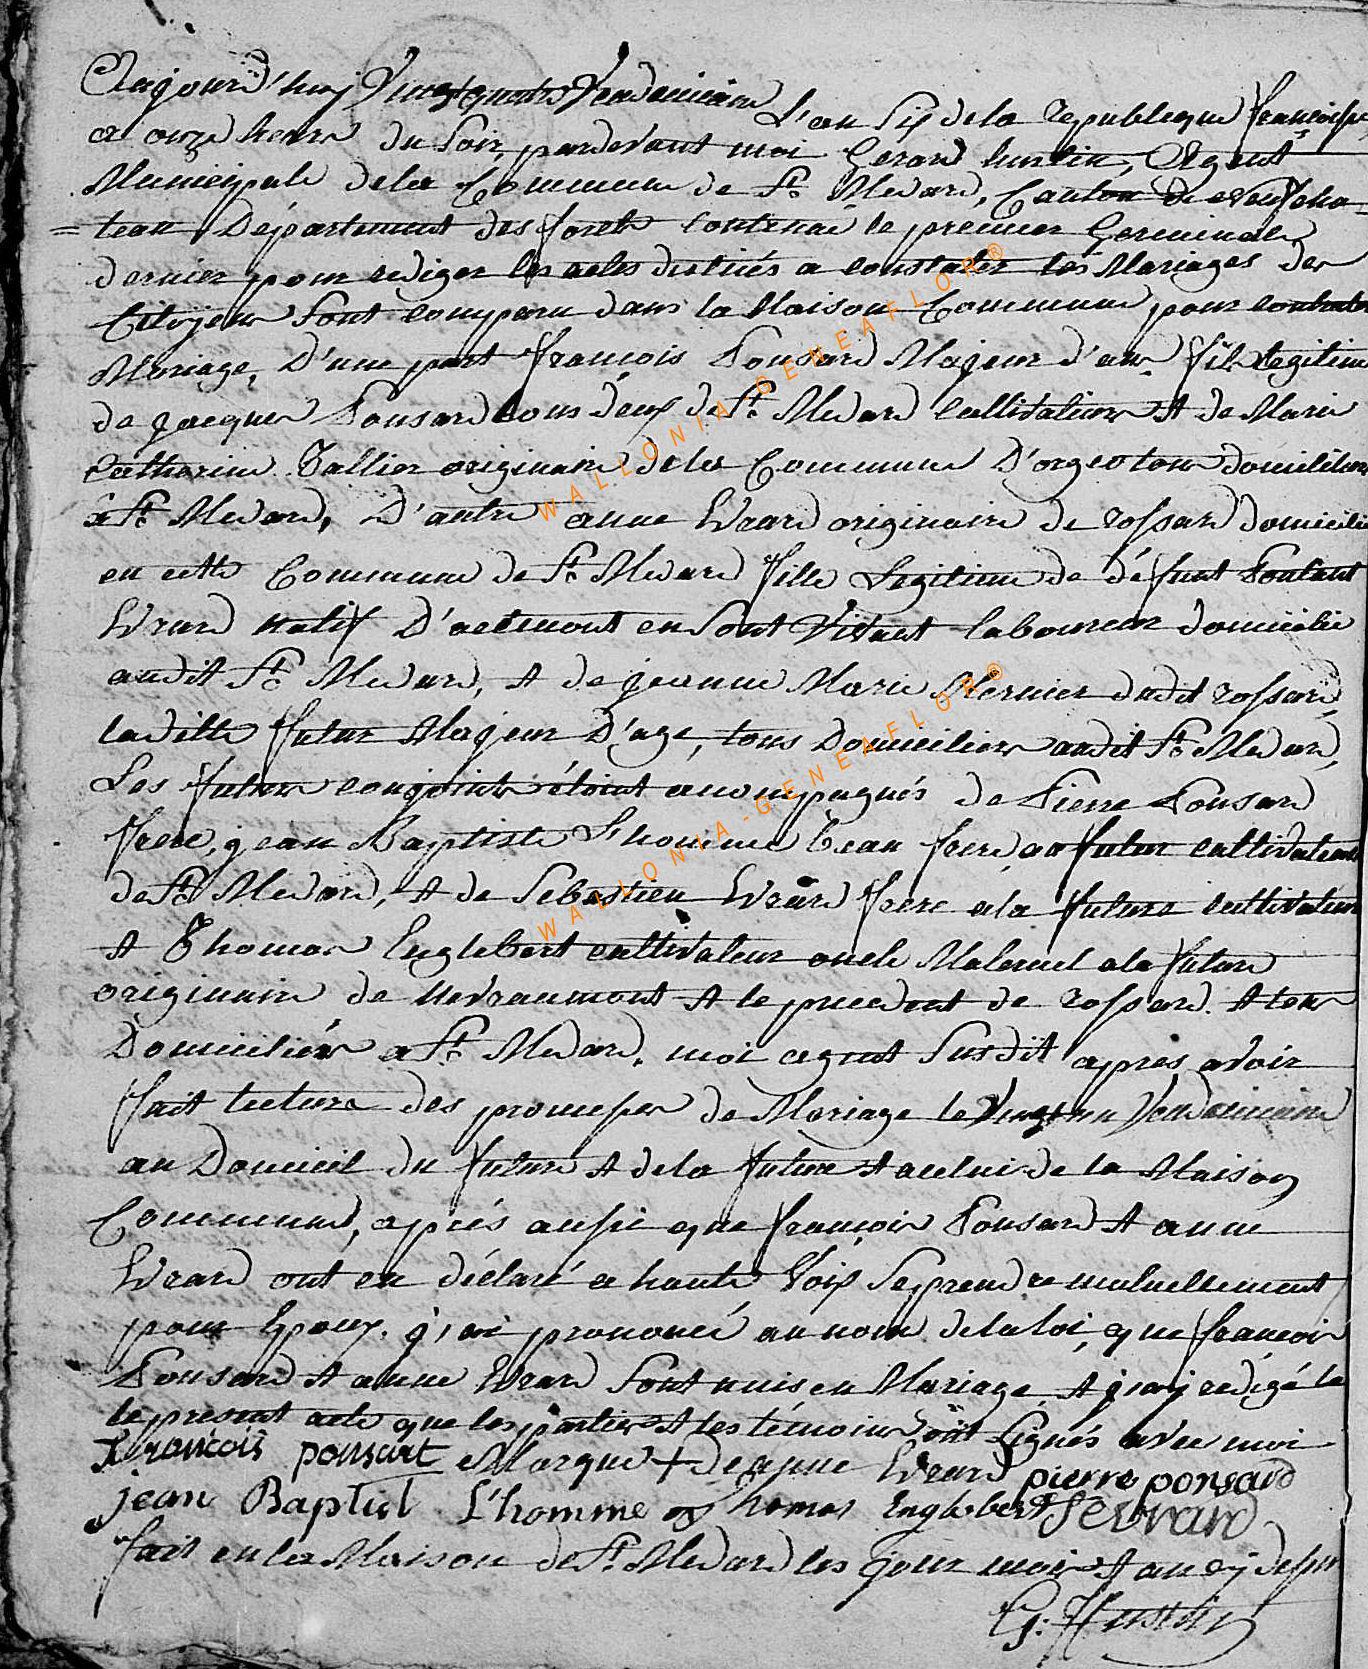 Aujourd'huy Vingt quatre Vendemiaire L'an Six de la republique françoise
a onze heure du Soir, pardevant moi Gerard hustin, Agent
Municipale de la Commune de St Medard, Canton de neufcha
= teau Département des forets Contenue le premier Germinale
dernier pour rediger les actes destinés a constater les Mariages des
Citoyens Sont comparu dans la Maison Commune pour contracter
Mariage, D'une part françois Ponsard Majeur d'an. fils legitime
de jacques Ponsard tous deux de St Medard cultivateur & de Marie
Catherine Tallier originaire de la Commune D'orgeo tous domiciliers
a St Medard, D'autre anne Evrard originaire de rossard domicilié
en cette Commune de St Medard fille Legitime de défunt
Evrard natif D' en Sont Vivant laboureur domicilié
audit St Medard, & de jeanne Marie Mernier dudit rossard,
laditte futur Majeur D'age, tous Domiciliers audit St Medard,
Les futurs conjoints étoint accompagnés de Pierre Ponsard
frere, jean Baptiste L'homme beau frere au futur cultivateurs
de St Medard, & de Sebastien Evrard frere a la future cultivateur
& Thomas Englebert cultivateur oncle Maternel a la future
originaire de nevraumont & le precedent de rossard. & tous
Domiciliés a St Medard. moi agent Susdit apres avoir
fait lecture des promesses de Mariage le Vingt un Vendemiaire
au Domicil du future & de la future & a celui de la Maison
Commune, après aussi que françois Ponsard & anne
Evrard ont eu déclaré a haute Voix Se prendre mutuellement
pour Epoux. j'ai prononcé au nom de la loi, que françois
Ponsard & anne Evrard Sont unis en Mariage & j'ay redigé le
le present acte que les parties & les témoins ont Signés avec moi
francois ponsart Marque + de anne Evrard pierre ponsard
jean Baptist L'homme Thomas Englebert S evrard
fait en la Maison de St Medard les jour mois & an cy dessus
G: Hustin
WALLONIA-GENEAFLOR®
WALLONIA-GENEAFLOR®